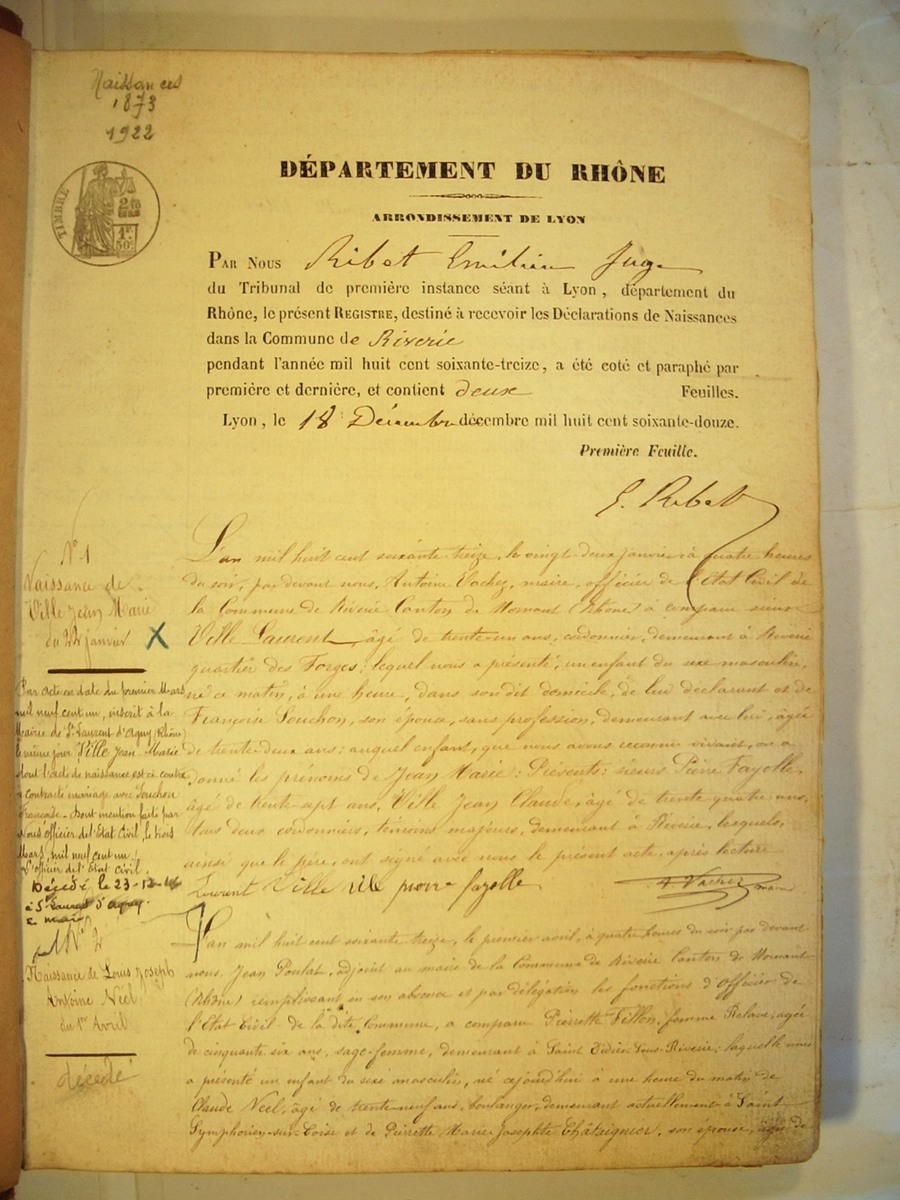 Naissances
1873
1922
TIMBRE
DÉPARTEMENT DU RHÔNE
ARRONDISSEMENT DE LYON
PAR NOUS Ribet Emilien Juge
du Tribunal de première instance séant à Lyon, département du
Rhône, le présent REGISTRE, destiné à recevoir les Déclarations de Naissances
dans la Commune de Riverie
pendant l'année mil huit cent soixante-treize, a été coté et paraphé par
première et dernière, et contient deux Feuilles.
Lyon, le 18 Décembre décembre mil huit cent soixante-douze.
Première Feuille.
E. Ribet
N° 1
Naissance de
Ville Jean Marie
du 22 janvier
X
L'an mil huit cent soixante treize, le vingt-deux janvier à quatre heures
du soir, par devant nous, Antoine Vachez, maire, officier de l'Etat Civil de
la Commune de Riverie Canton de Mornant (Rhône) a comparu sieur
Ville Laurent, âgé de trente-un ans, cordonnier, demeurant à Riverie
quartier des Forges; lequel nous a présenté, un enfant du sexe masculin,
né ce matin, à une heure, dans son dit domicile, de lui déclarant et de
Françoise Souchon, son épouse, sans profession, demeurant avec lui, âgée
de trente-deux ans; auquel enfant, que nous avons reconnu vivant, on a
donné les prénoms de Jean Marie: Présents: sieurs Pierre Fayolle,
âgé de trente-sept ans, Ville Jean Claude, âgé de trente-quatre ans,
tous deux cordonniers, témoins majeurs, demeurant à Riverie, lesquels,
ainsi que le père, ont signé avec nous le présent acte, après lecture
Laurent Ville ville pierre fayolle A Vachez maire
Par acte en date du premier Mars
mil neuf cent un, inscrit à la
Mairie de St Laurent d'Agny (Rhône)
le même jour Ville Jean Marie
dont l'acte de naissance est ci contre
a contracté mariage avec Souchon
Françoise - Dont mention faite par
Nous Officier de l'Etat Civil, le trois
Mars, mil neuf cent un.
L'officier de l'Etat Civil.
Décédé le 23-12-
à St Laurent d'Agny.
N° 2
Naissance de Louis Joseph
Antoine Néel
du 1er Avril
décédé
L'an mil huit cent soixante treize, le premier avril, à quatre heures du soir par devant
nous, Jean Poulat, adjoint au maire de la Commune de Riverie Canton de Mornant
(Rhône) remplissant en son absence et par délégation les fonctions d'Officier de
l'Etat Civil de la dite Commune, a comparu Pierrette Fillon, femme Relave, âgée
de cinquante six ans, sage-femme, demeurant à Saint Didier sous Riverie; laquelle nous
a présenté un enfant du sexe masculin, né cejourd'hui à une heure du matin de
Claude Néel, âgé de trente-neuf ans, boulanger, demeurant actuellement à Saint
Symphorien-sur-Coise et de Pierrette Marie Josephte Chataignier, son épouse, âgée de